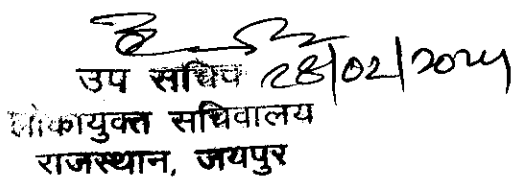 उप सचिव 28/02/2024
लोकायुक्त सचिवालय
राजस्थान, जयपुर